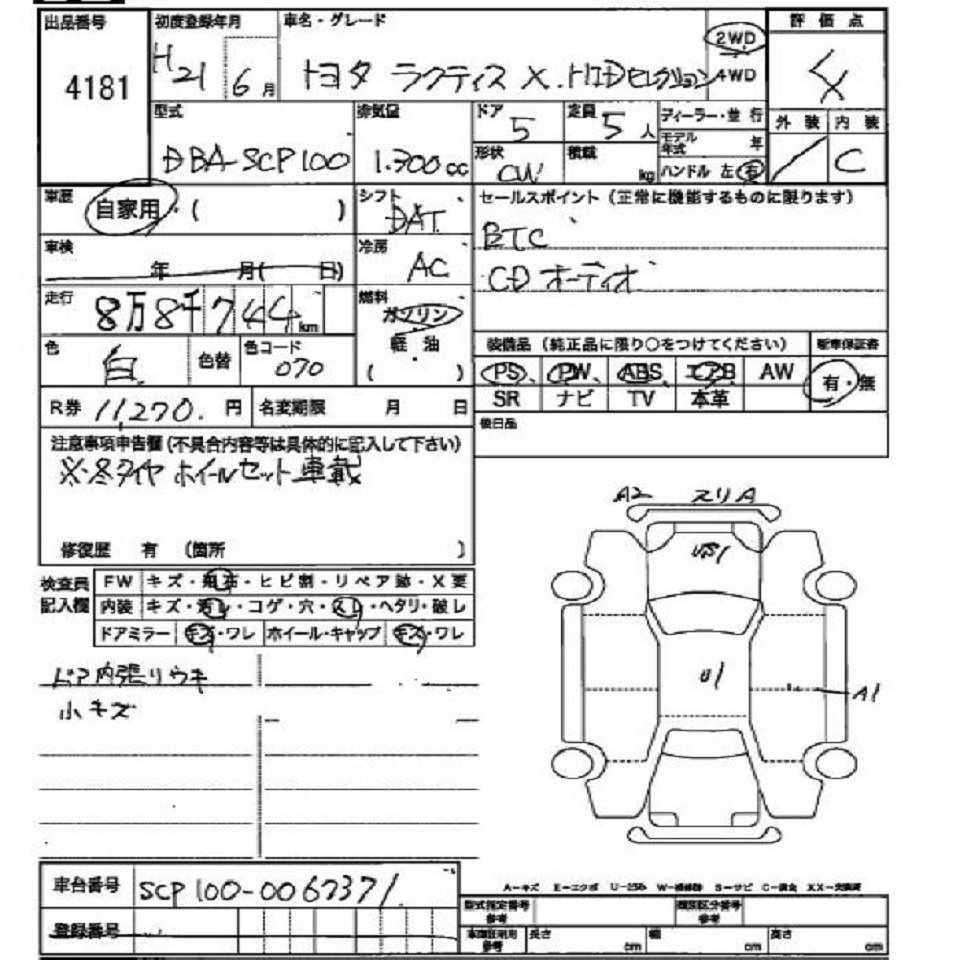 出品番号
4181
初度登録年月
H21 6月
車名・グレード
トヨタ ラクティス X. HIDセレクション
2WD
4WD
評価点
外装 内装
C
型式
DBA-SCP100
排気量
1.300cc
ドア
5
定員
5人
ディーラー・並行
モデル年式 年
形状
CW
積載
kg
ハンドル 左・右
車歴
自家用・( )
シフト
DAT
セールスポイント(正常に機能するものに限ります)
BTC
CDオーディオ
車検
年 月( 日)
冷房
AC
走行
8万8千744km
燃料
ガソリン
軽油
( )
色
白
色替
色コード
070
装備品(純正品に限り○をつけてください)
新車保証書
PS PW ABS エアB AW
有・無
SR ナビ TV 本革
R券 11,270.円
名変期限 月 日
後日品
注意事項申告欄(不具合内容等は具体的に記入して下さい)
※冬タイヤ ホイールセット車載
修復歴 有 (箇所 )
検査員
記入欄
FW キズ・飛石・ヒビ割・リペア跡・X要
内装 キズ・汚レ・コゲ・穴・スレ・ヘタリ・破レ
ドアミラー キズ・ワレ ホイール・キャップ キズ・ワレ
ドア内張リウキ
小キズ
A2 スリA
U1
A1
車台番号
SCP100-0067371
登録番号
A-キズ E-エクボ
型式指定番号
参考
類別区分番号
参考
参考
長さ cm
幅 cm
高さ cm